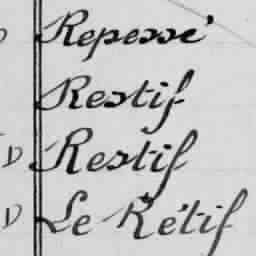 Repessé
Restif
D Restif
D Le Rétif